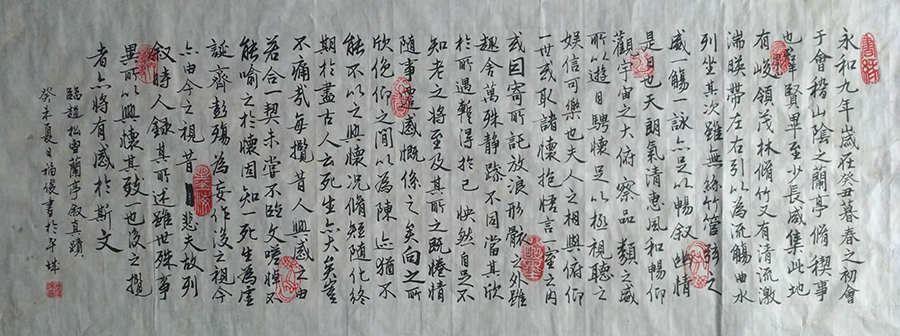 永和九年歲在癸丑暮春之初會
于會稽山陰之蘭亭脩稧事
也羣賢畢至少長咸集此地
有峻領茂林脩竹又有清流激
湍暎帶左右引以為流觴曲水
列坐其次雖無絲竹管弦之
盛一觴一詠亦足以暢叙幽情
是日也天朗氣清惠風和暢仰
觀宇宙之大俯察品類之盛
所以遊目騁懷足以極視聽之
娛信可樂也夫人之相與俯仰
一世或取諸懷抱悟言一室之內
或因寄所託放浪形骸之外雖
趣舍萬殊靜躁不同當其欣
於所遇暫得於己怏然自足不
知老之將至及其所之既惓情
隨事遷感慨係之矣向之所
欣俛仰之間以為陳迹猶不
能不以之興懷況脩短隨化終
期於盡古人云死生亦大矣豈
不痛哉每攬昔人興感之由
若合一契未嘗不臨文嗟悼不
能喻之於懷固知一死生為虛
誕齊彭殤為妄作後之視今
亦由今之視昔悲夫故列
叙時人錄其所述雖世殊事
異所以興懷其致一也後之攬
者亦將有感於斯文
臨趙松雪蘭亭叙真蹟
癸未夏日福優書於羊城